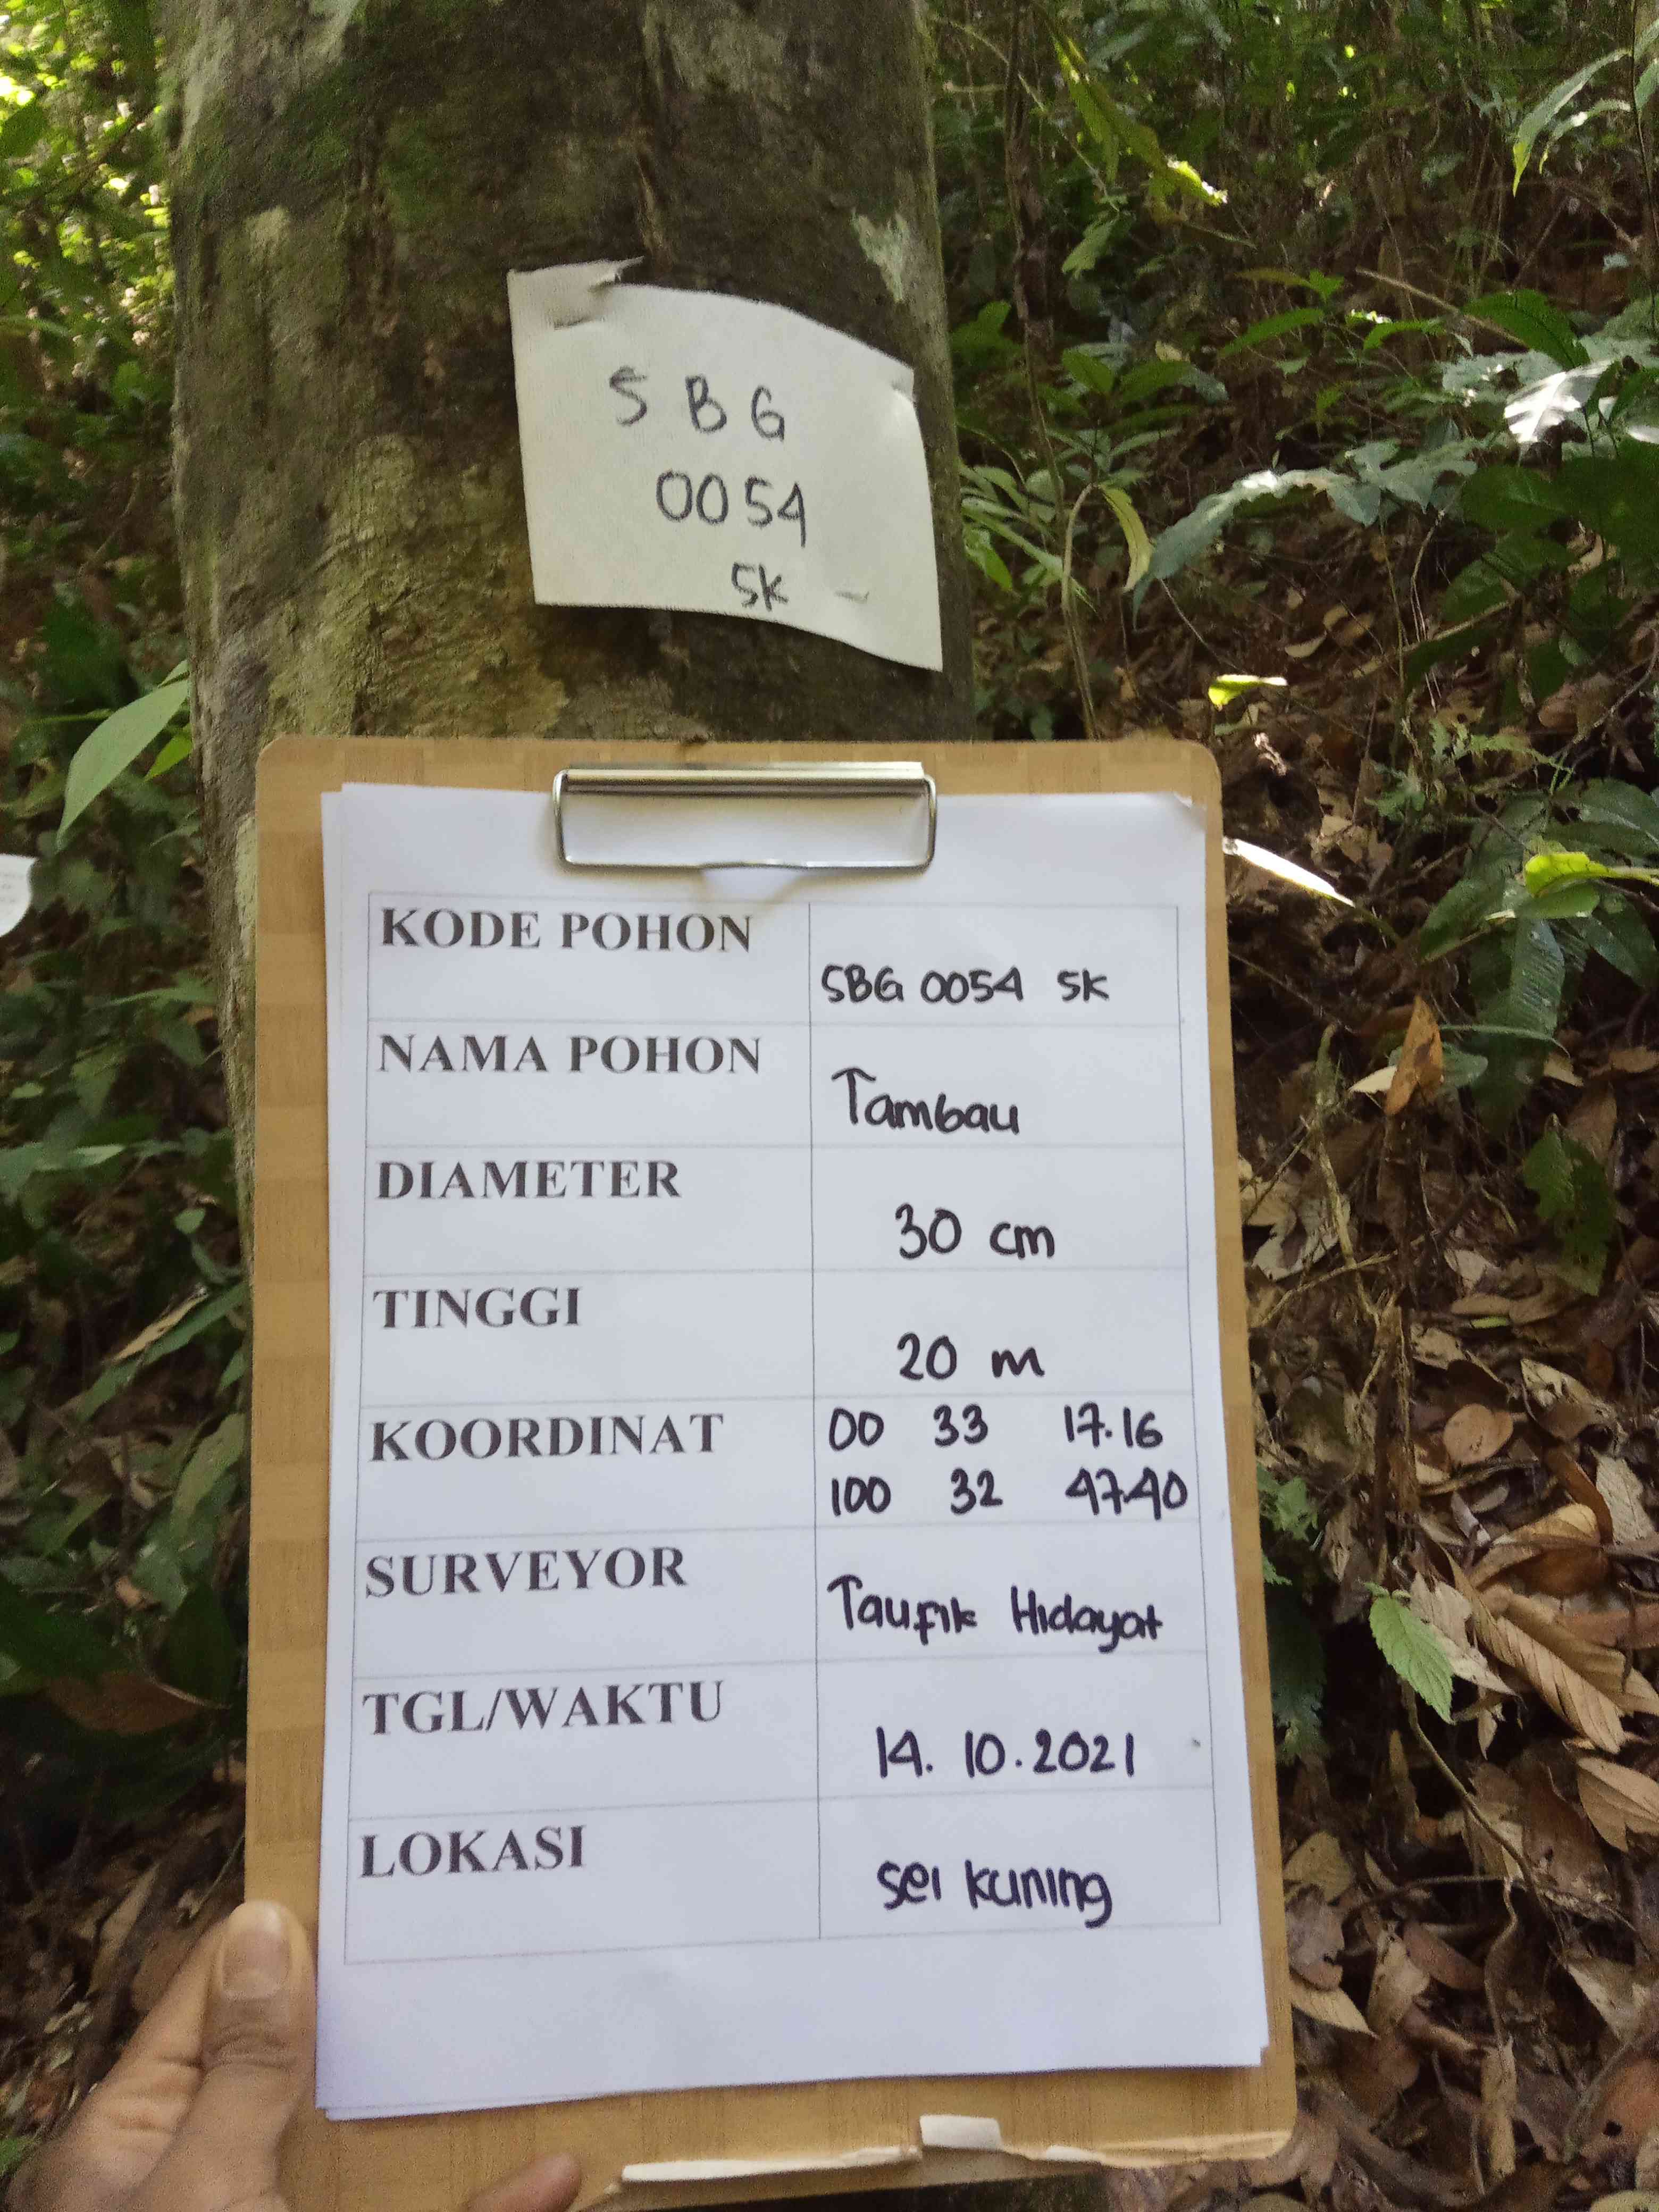 S B G
0054
SK
KODE POHON
SBG 0054 SK
NAMA POHON
Tambau
DIAMETER
30 cm
TINGGI
20 m
KOORDINAT
00 33 17.16
100 32 47.40
SURVEYOR
Taufik Hidayat
TGL/WAKTU
14. 10. 2021
LOKASI
Sei Kuning